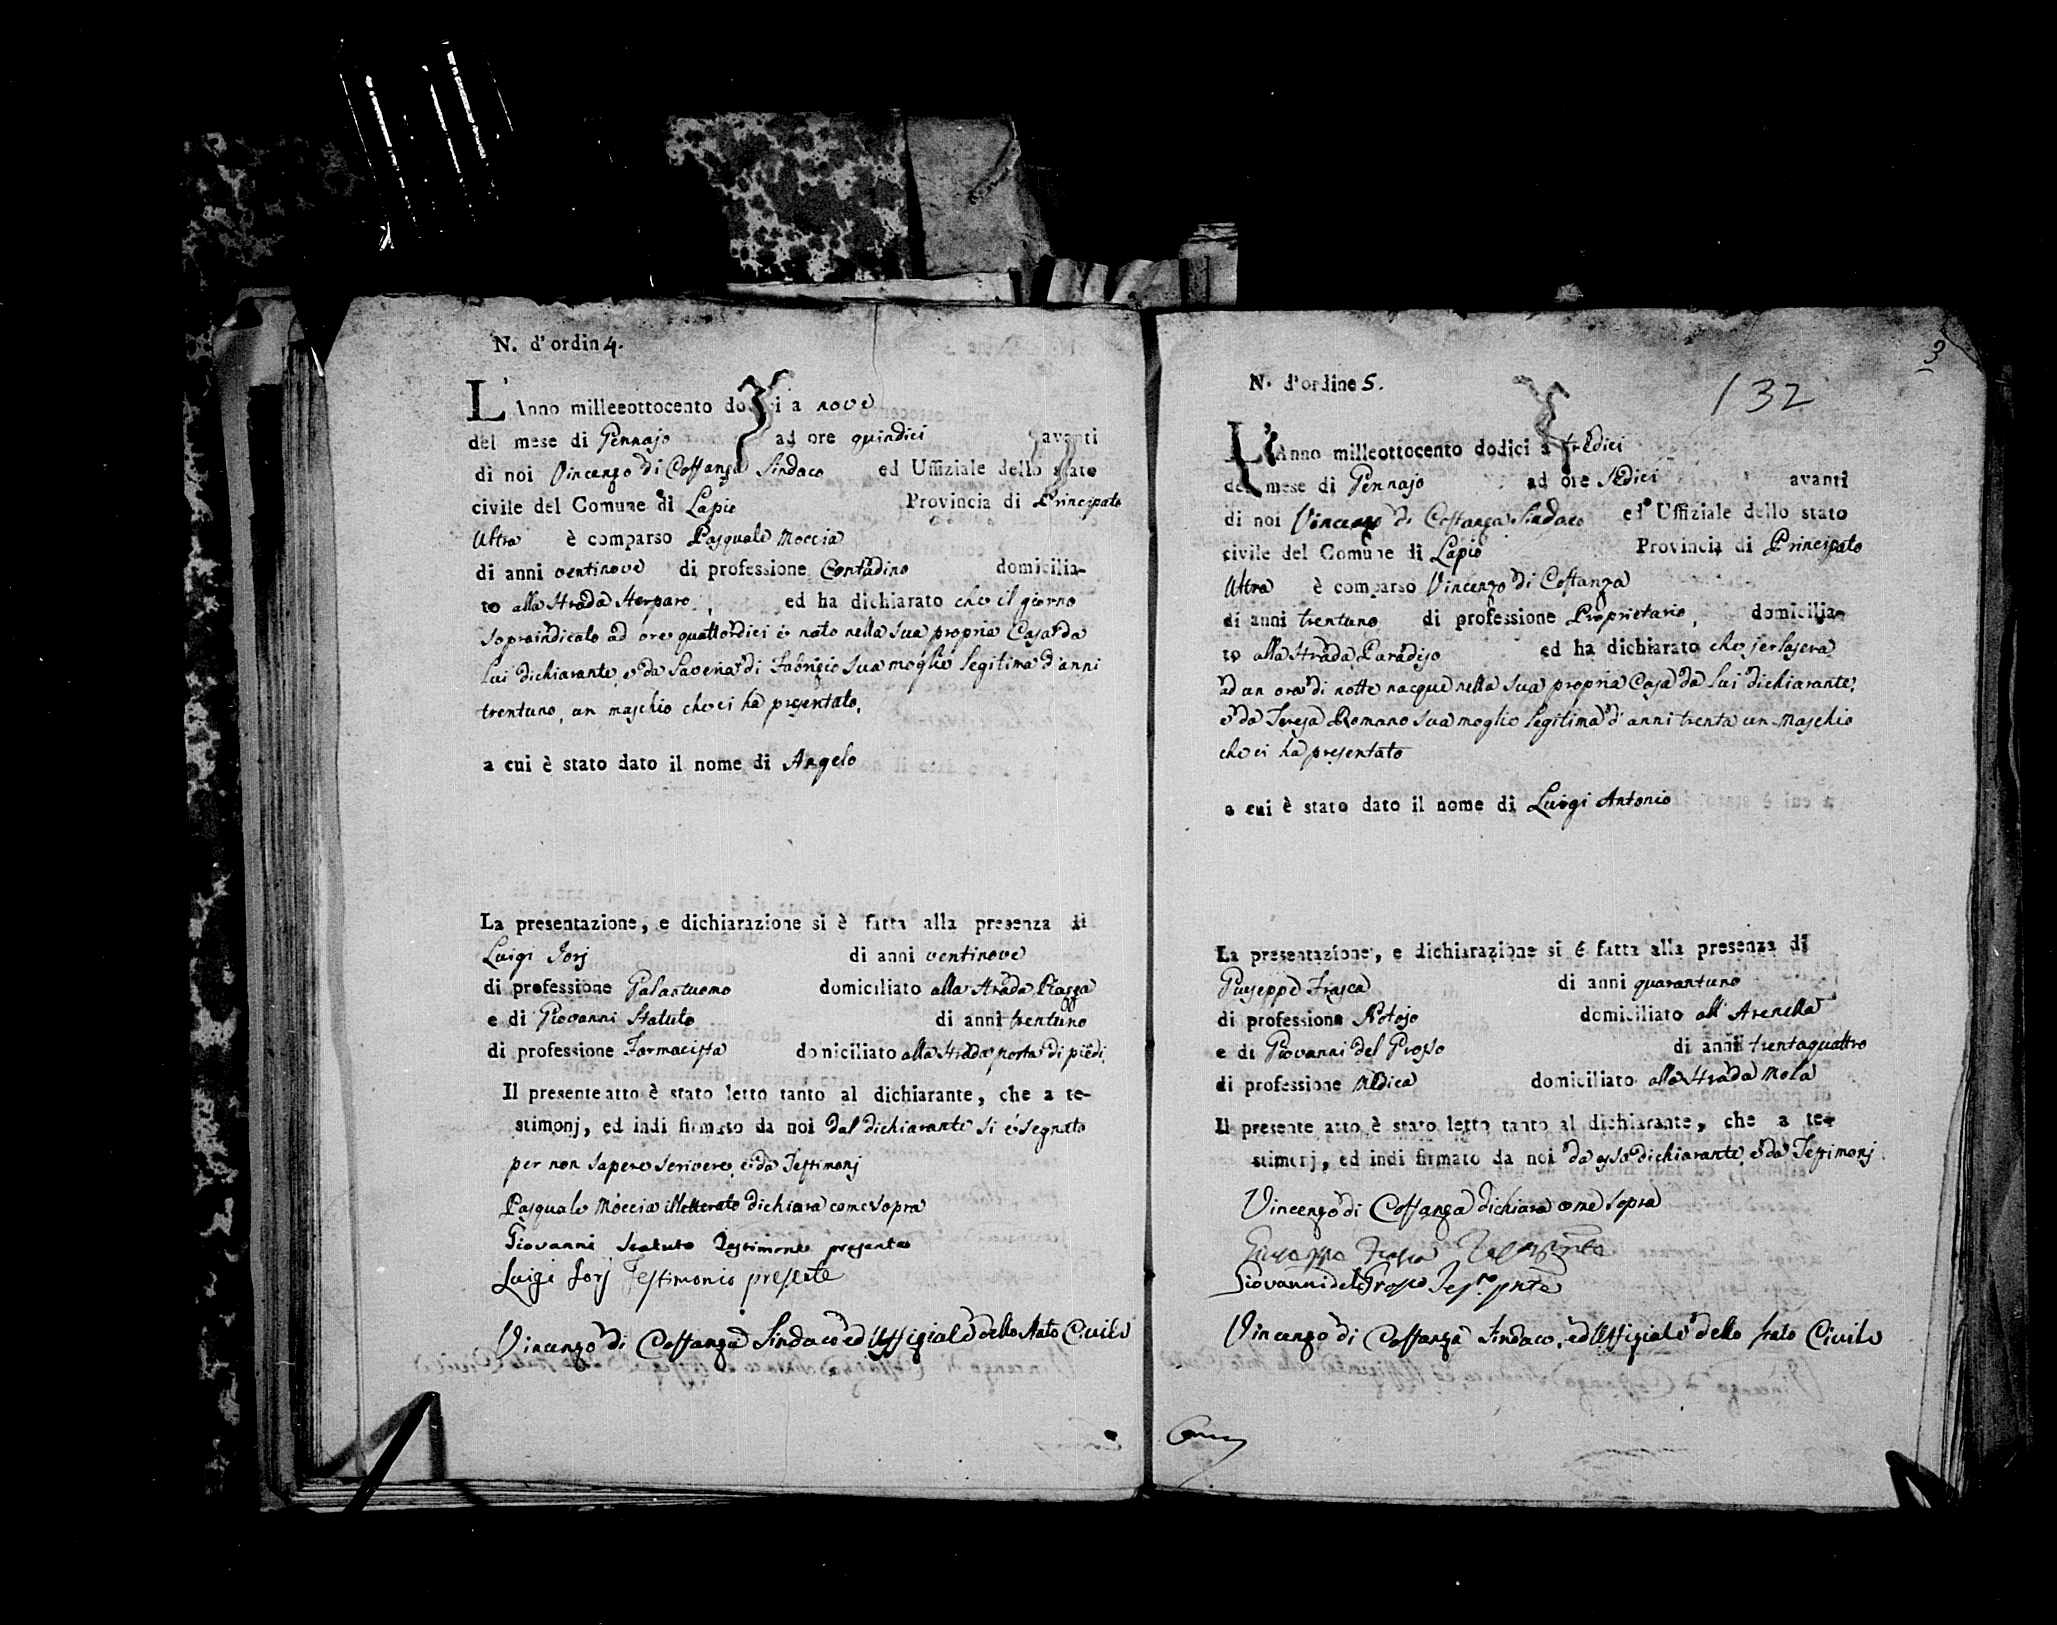 N. d'ordin 4.
L'Anno milleeottocento dodici a nove
del mese di Gennajo ad ore quindici avanti
di noi Vincenzo di Costanza Sindaco ed Uffiziale dello stato
civile del Comune di Lapio Provincia di Principato
Ultra è comparso Pasquale Moccia
di anni ventinove di professione Contadino domicilia-
to alla Strada ed ha dichiarato che il giorno
sopraindicato ad ore quattordici è nato nella sua propria Casa da
lui dichiarante, e da Saveria di Fabrizio sua moglie legitima d'anni
trentuno, un maschio che ci ha presentato,
a cui è stato dato il nome di Angelo
La presentazione, e dichiarazione si è fatta alla presenza di
Luigi Jorj di anni ventinove
di professione Galantuomo domiciliato alla Strada Piazza
e di Giovanni Statuto di anni trentuno
di professione Farmacista domiciliato alla Strada porta di piedi
Il presente atto è stato letto tanto al dichiarante, che a te-
stimonj, ed indi firmato da noi dal dichiarante si è segnato
per non sapere scrivere, e da Testimonj
Pasquale Moccia illetterato dichiara come sopra
Giovanni Statuto Testimone presente
Luigi Jorj Testimonio presente
Vincenzo di Costanza Sindaco ed Uffiziale dello Stato Civile
3
132
N. d'ordine 5.
L'Anno milleottocento dodici a tredici
del mese di Gennajo ad ore sedici avanti
di noi Vincenzo di Costanza Sindaco ed Uffiziale dello stato
civile del Comune di Lapio Provincia di Principato
Ultra è comparso Vincenzo di Costanza
di anni trentuno di professione Proprietario, domicilia-
to alla Strada Paradiso ed ha dichiarato che jer la sera
ad un ora di notte nacque nella sua propria Casa da lui dichiarante,
e da Teresa Romano sua moglie legitima d'anni trenta un Maschio
che ci ha presentato
a cui è stato dato il nome di Luigi Antonio
La presentazione, e dichiarazione si è fatta alla presenza di
Giuseppe Frasca di anni quarantuno
di professione Notajo domiciliato all' Arenella
e di Giovanni del Grosso di anni trentaquattro
di professione Medico domiciliato alla Strada Mola
Il presente atto è stato letto tanto al dichiarante, che a te-
stimonj, ed indi firmato da noi da esso dichiarante, e da Testimonj
Vincenzo di Costanza dichiara come sopra
Giuseppe Frasca
Giovanni del Grosso Tes.º pnte
Vincenzo di Costanza Sindaco, ed Uffiziale dello stato Civile